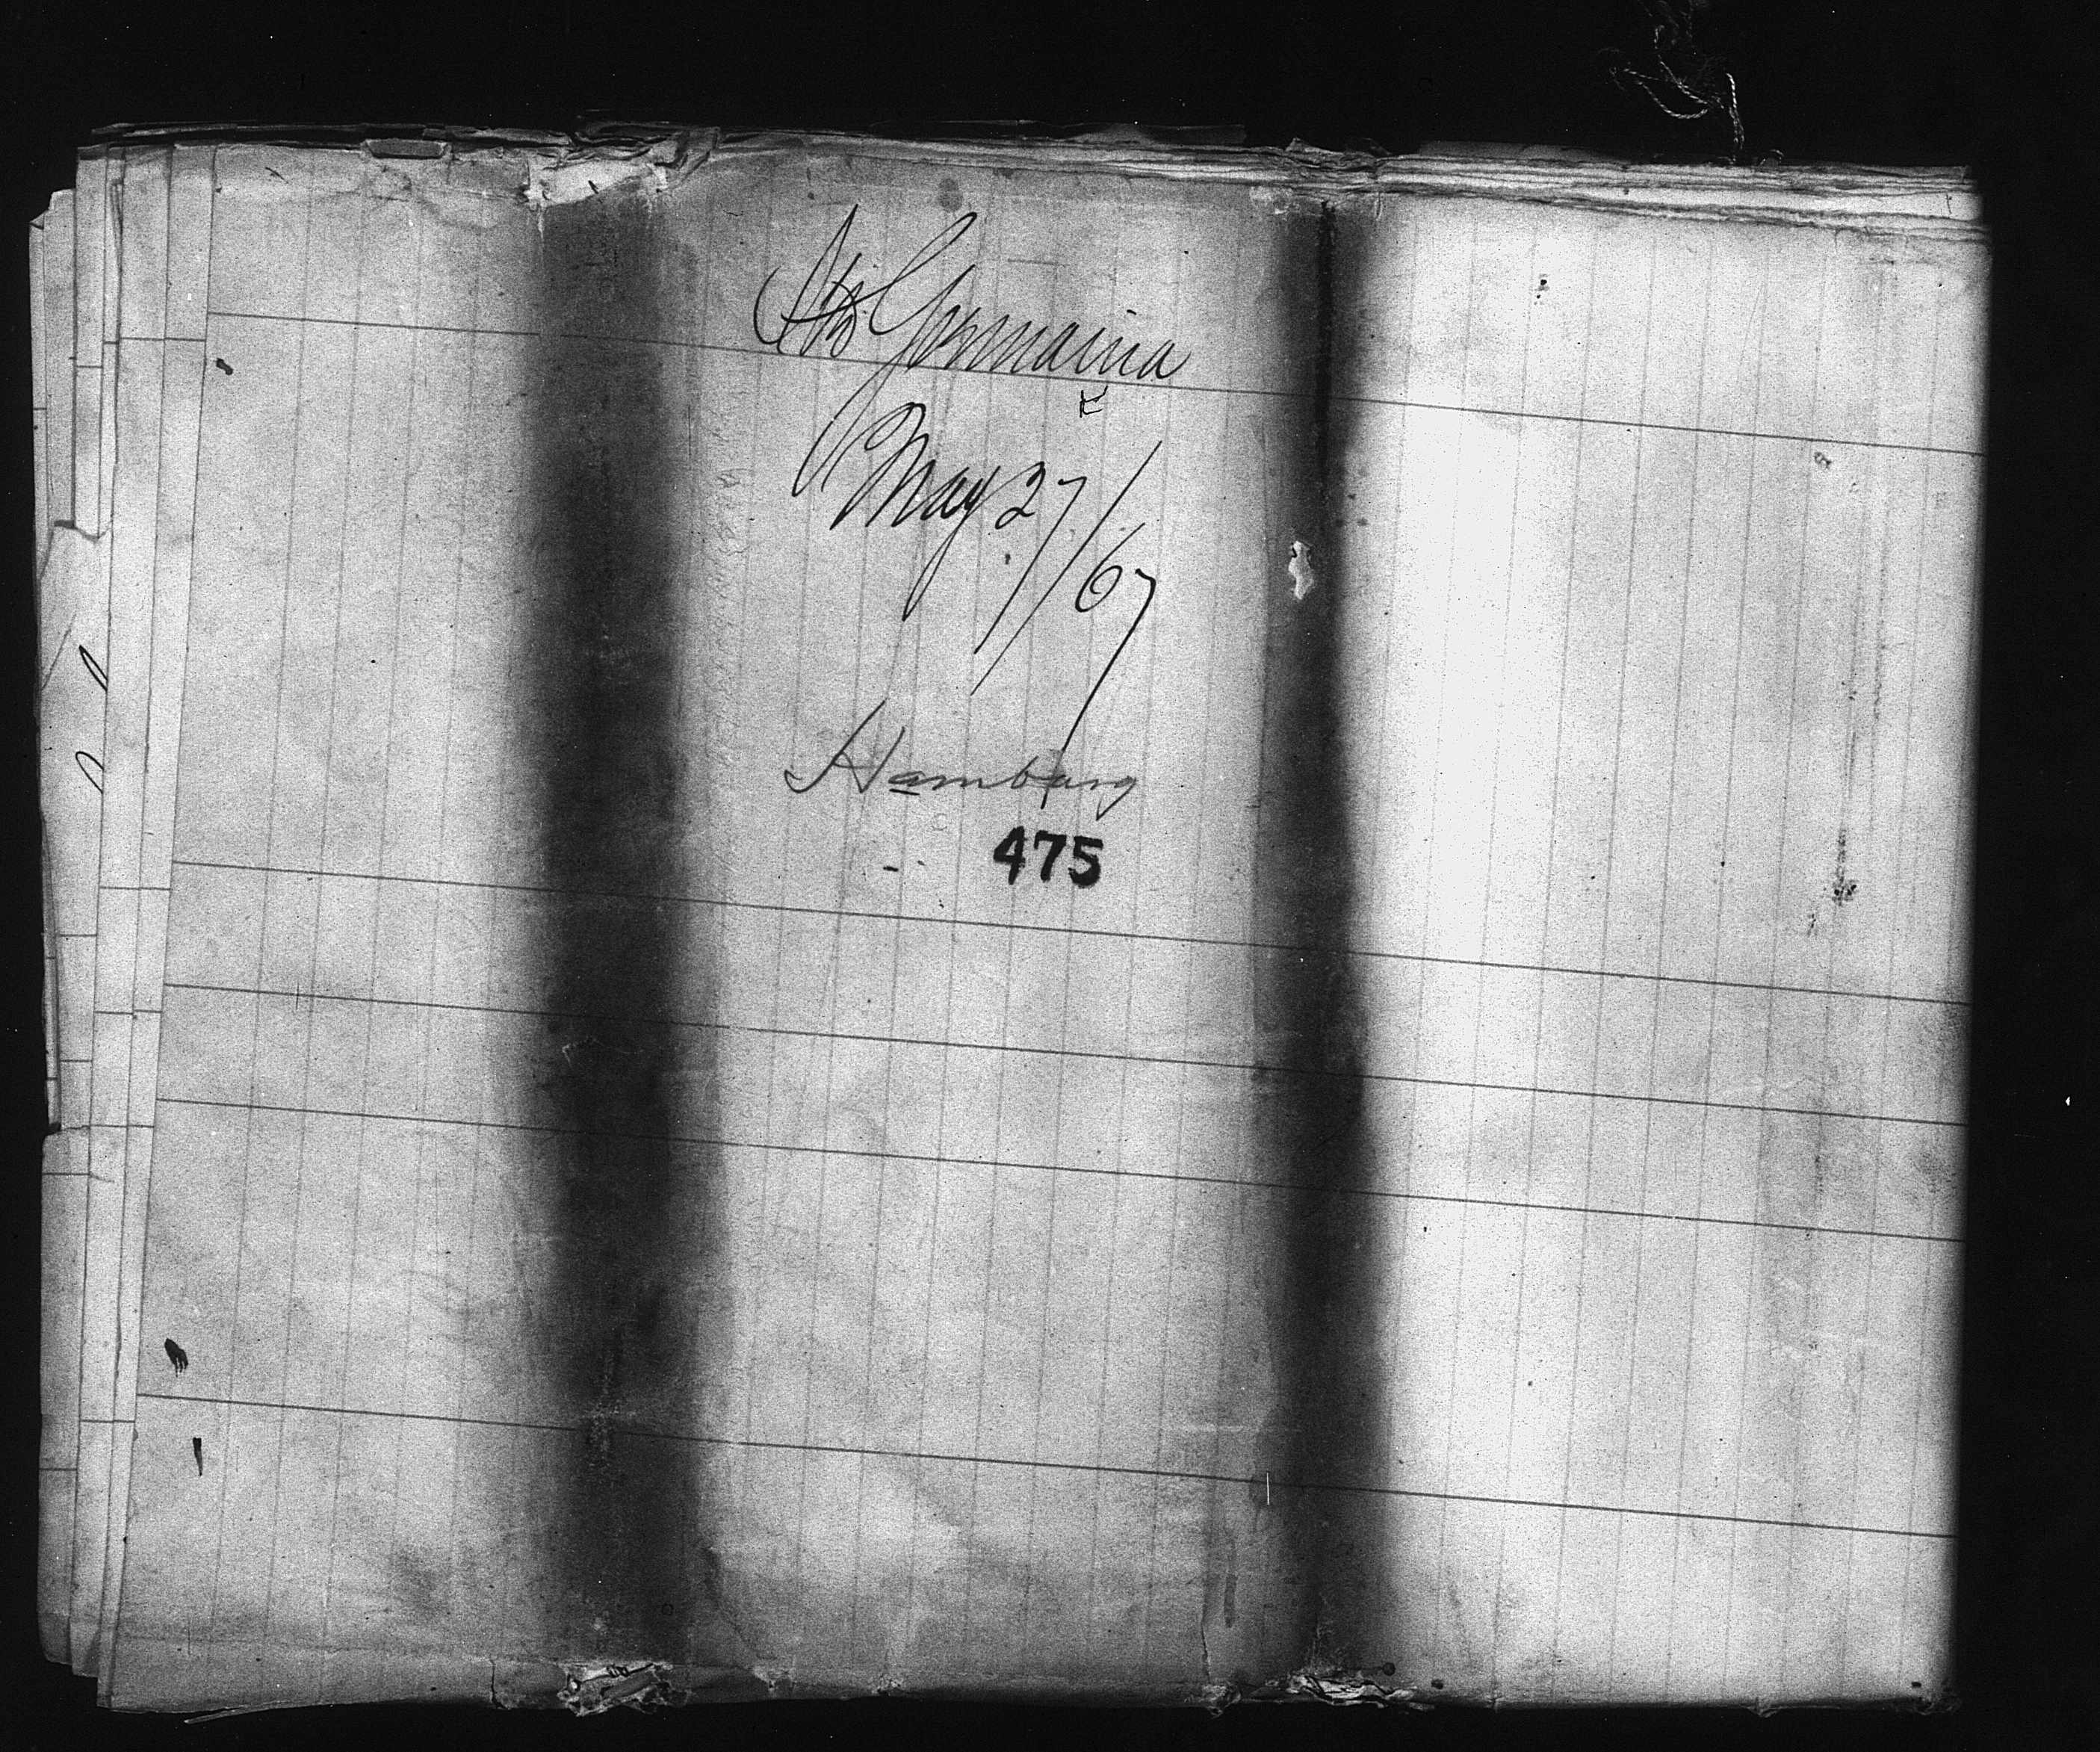 Str Germania
May 27/67
Hamburg
475